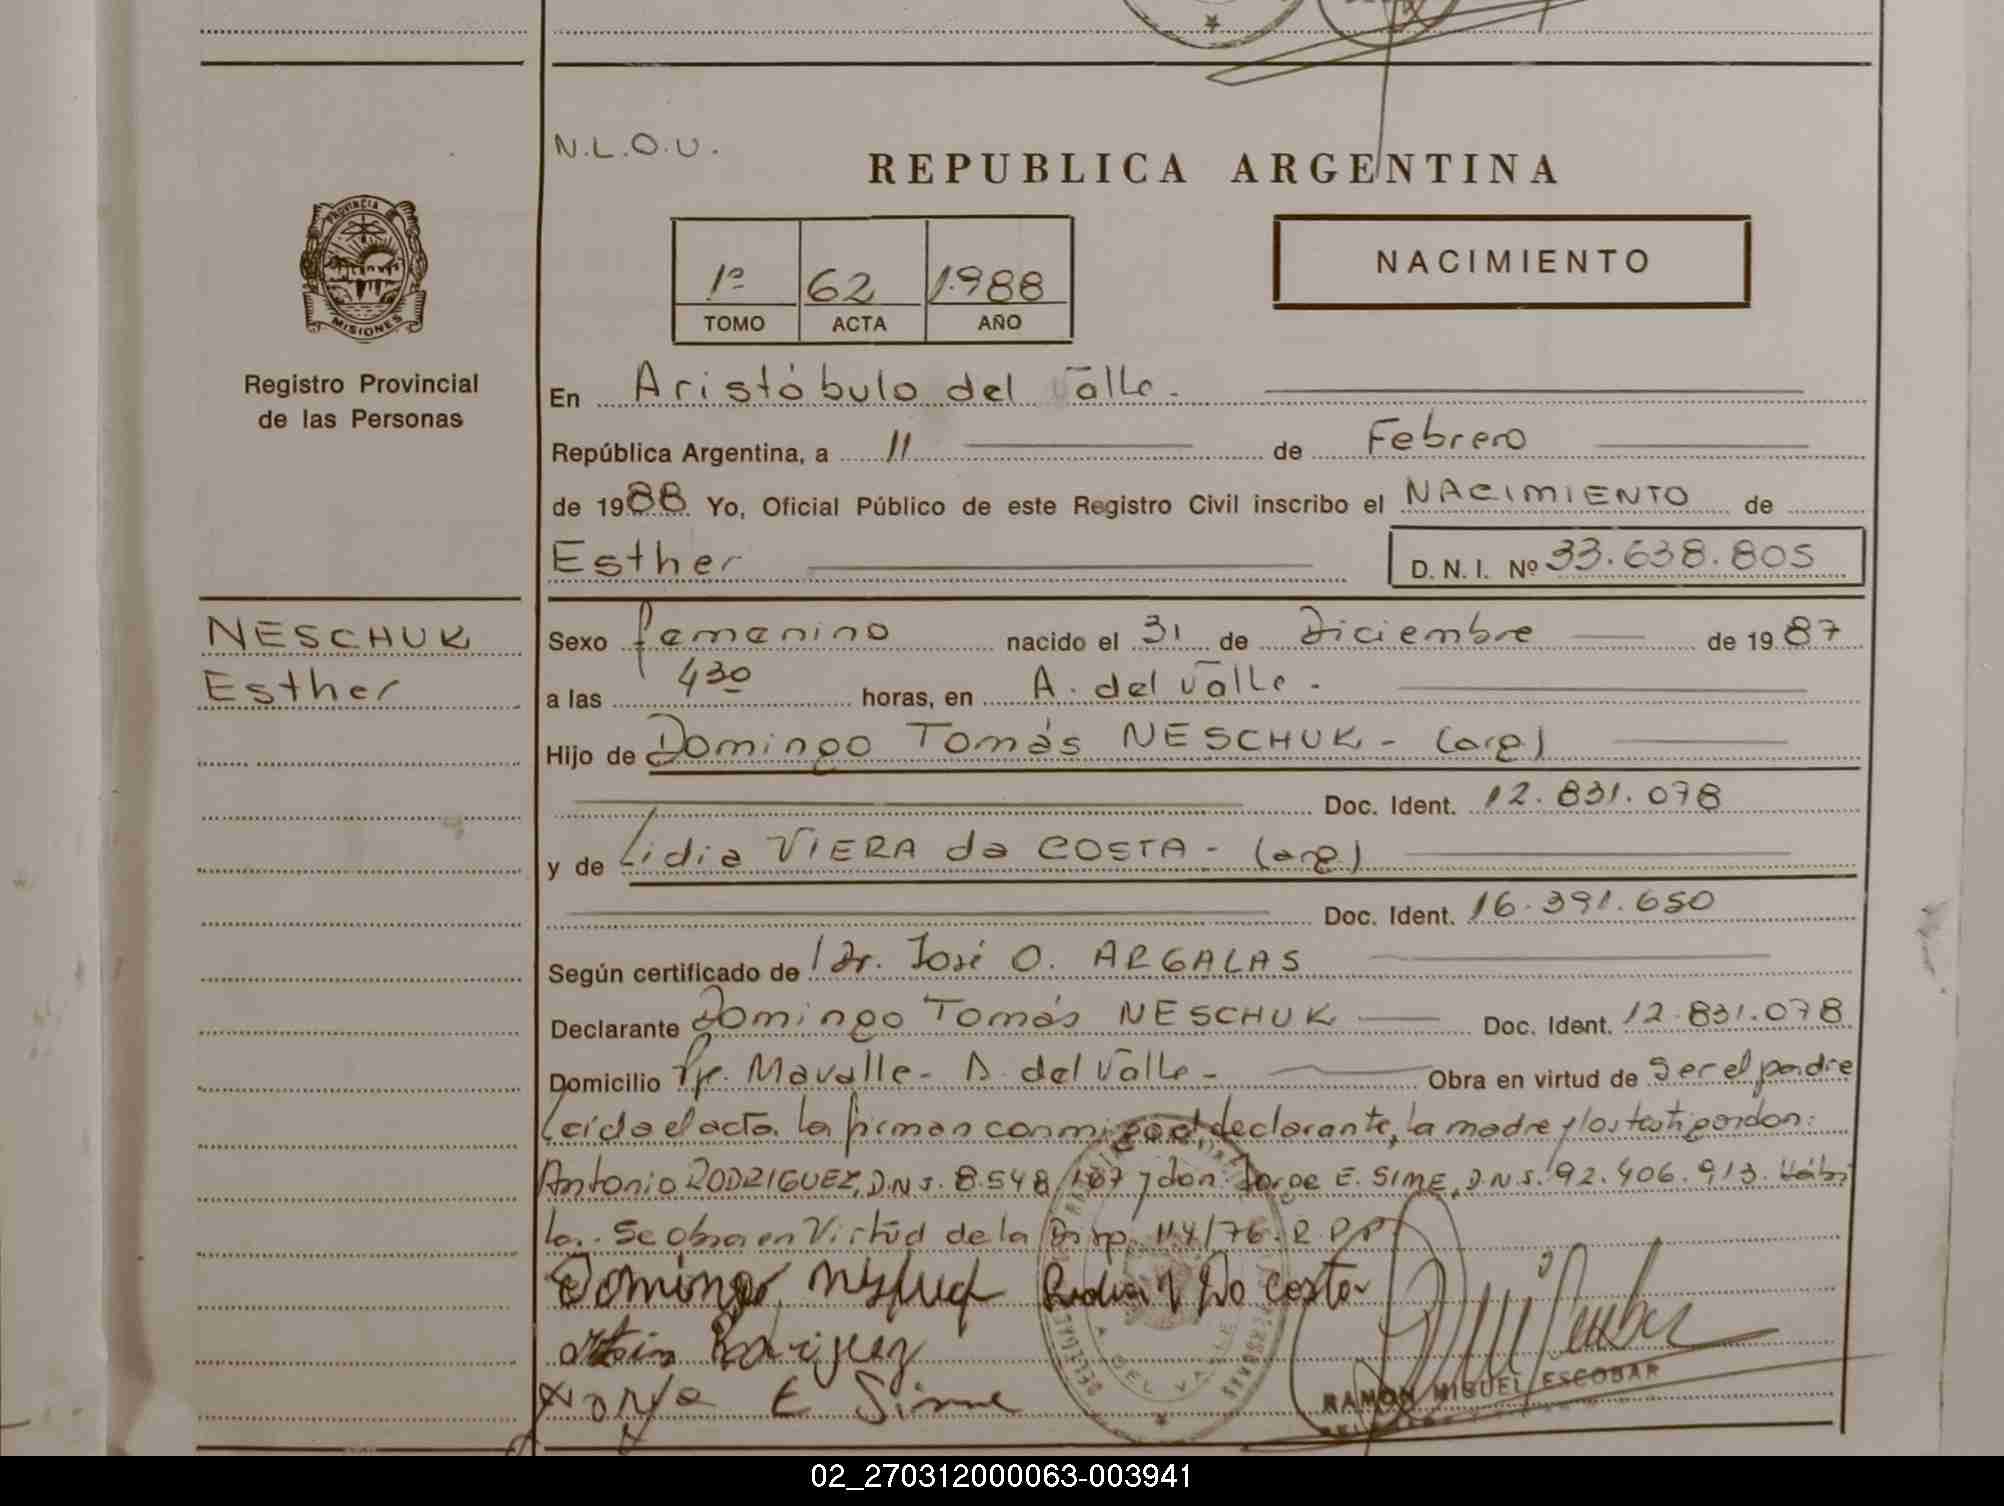 N.L.O.U.
REPUBLICA ARGENTINA
PROVINCIA DE
MISIONES
Registro Provincial
de las Personas
1º 62 1.988
TOMO ACTA AÑO
NACIMIENTO
En Aristóbulo del Valle.
República Argentina, a 11 de Febrero
de 1988 Yo, Oficial Público de este Registro Civil inscribo el NACIMIENTO de
Esther D. N. I. Nº 33.638.805
NESCHUK
Esther
Sexo femenino nacido el 31 de Diciembre de 1987
a las 430 horas, en A. del Valle.
Hijo de Domingo Tomás NESCHUK - (arg)
Doc. Ident. 12.831.078
y de Lidia VIERA da COSTA - (arg)
Doc. Ident. 16.391.650
Según certificado de Dr. José O. ARGALAS
Declarante Domingo Tomás NESCHUK Doc. Ident. 12.831.078
Domicilio Pje. Mavalle - A. del Valle - Obra en virtud de ser el padre
Leída el acta la firman conmigo el declarante, la madre y los testigos don:
Antonio RODRIGUEZ, D.N.I. 8.548.187 y don Jorge E. SIME, D.N.I. 92.406.913. Hábi
la. Se obra en Virtud de la Disp. 114/76. R.P.P
Domingo
Da Costa
Rodriguez
Jorge E Sime
A. DEL VALLE
RAMON MIGUEL ESCOBAR
02_270312000063-003941